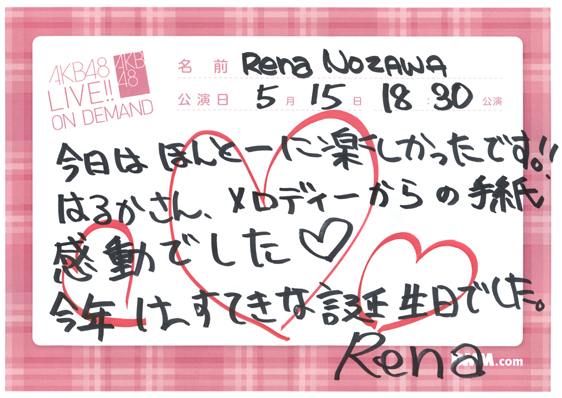 AKB48
LIVE!!
ON DEMAND
AKB
48
名 前 Rena NOZAWA
公演日 5 月 15 日 18 : 30 公演
今日は ほんとーに楽しかったです!!
はるかさん、メロディーからの手紙、
感動でした♡
今年は、すてきな誕生日でした。
Rena
.com